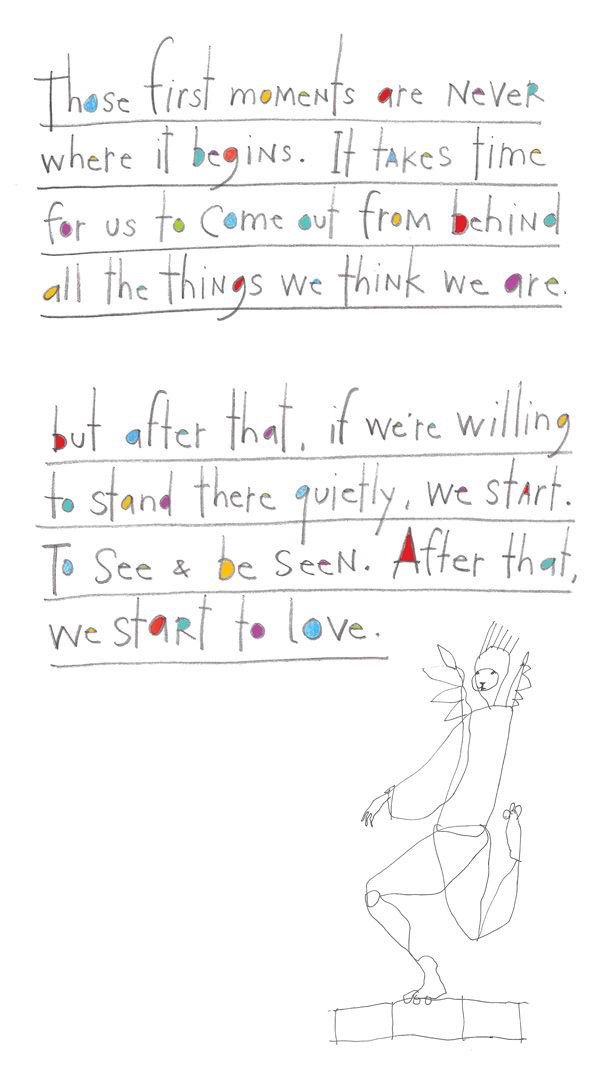 Those first moments are never
where it begins. It takes time
for us to come out from behind
all the things we think we are.
but after that, if we're willing
to stand there quietly, we start.
To see & be seen. After that,
we start to love.